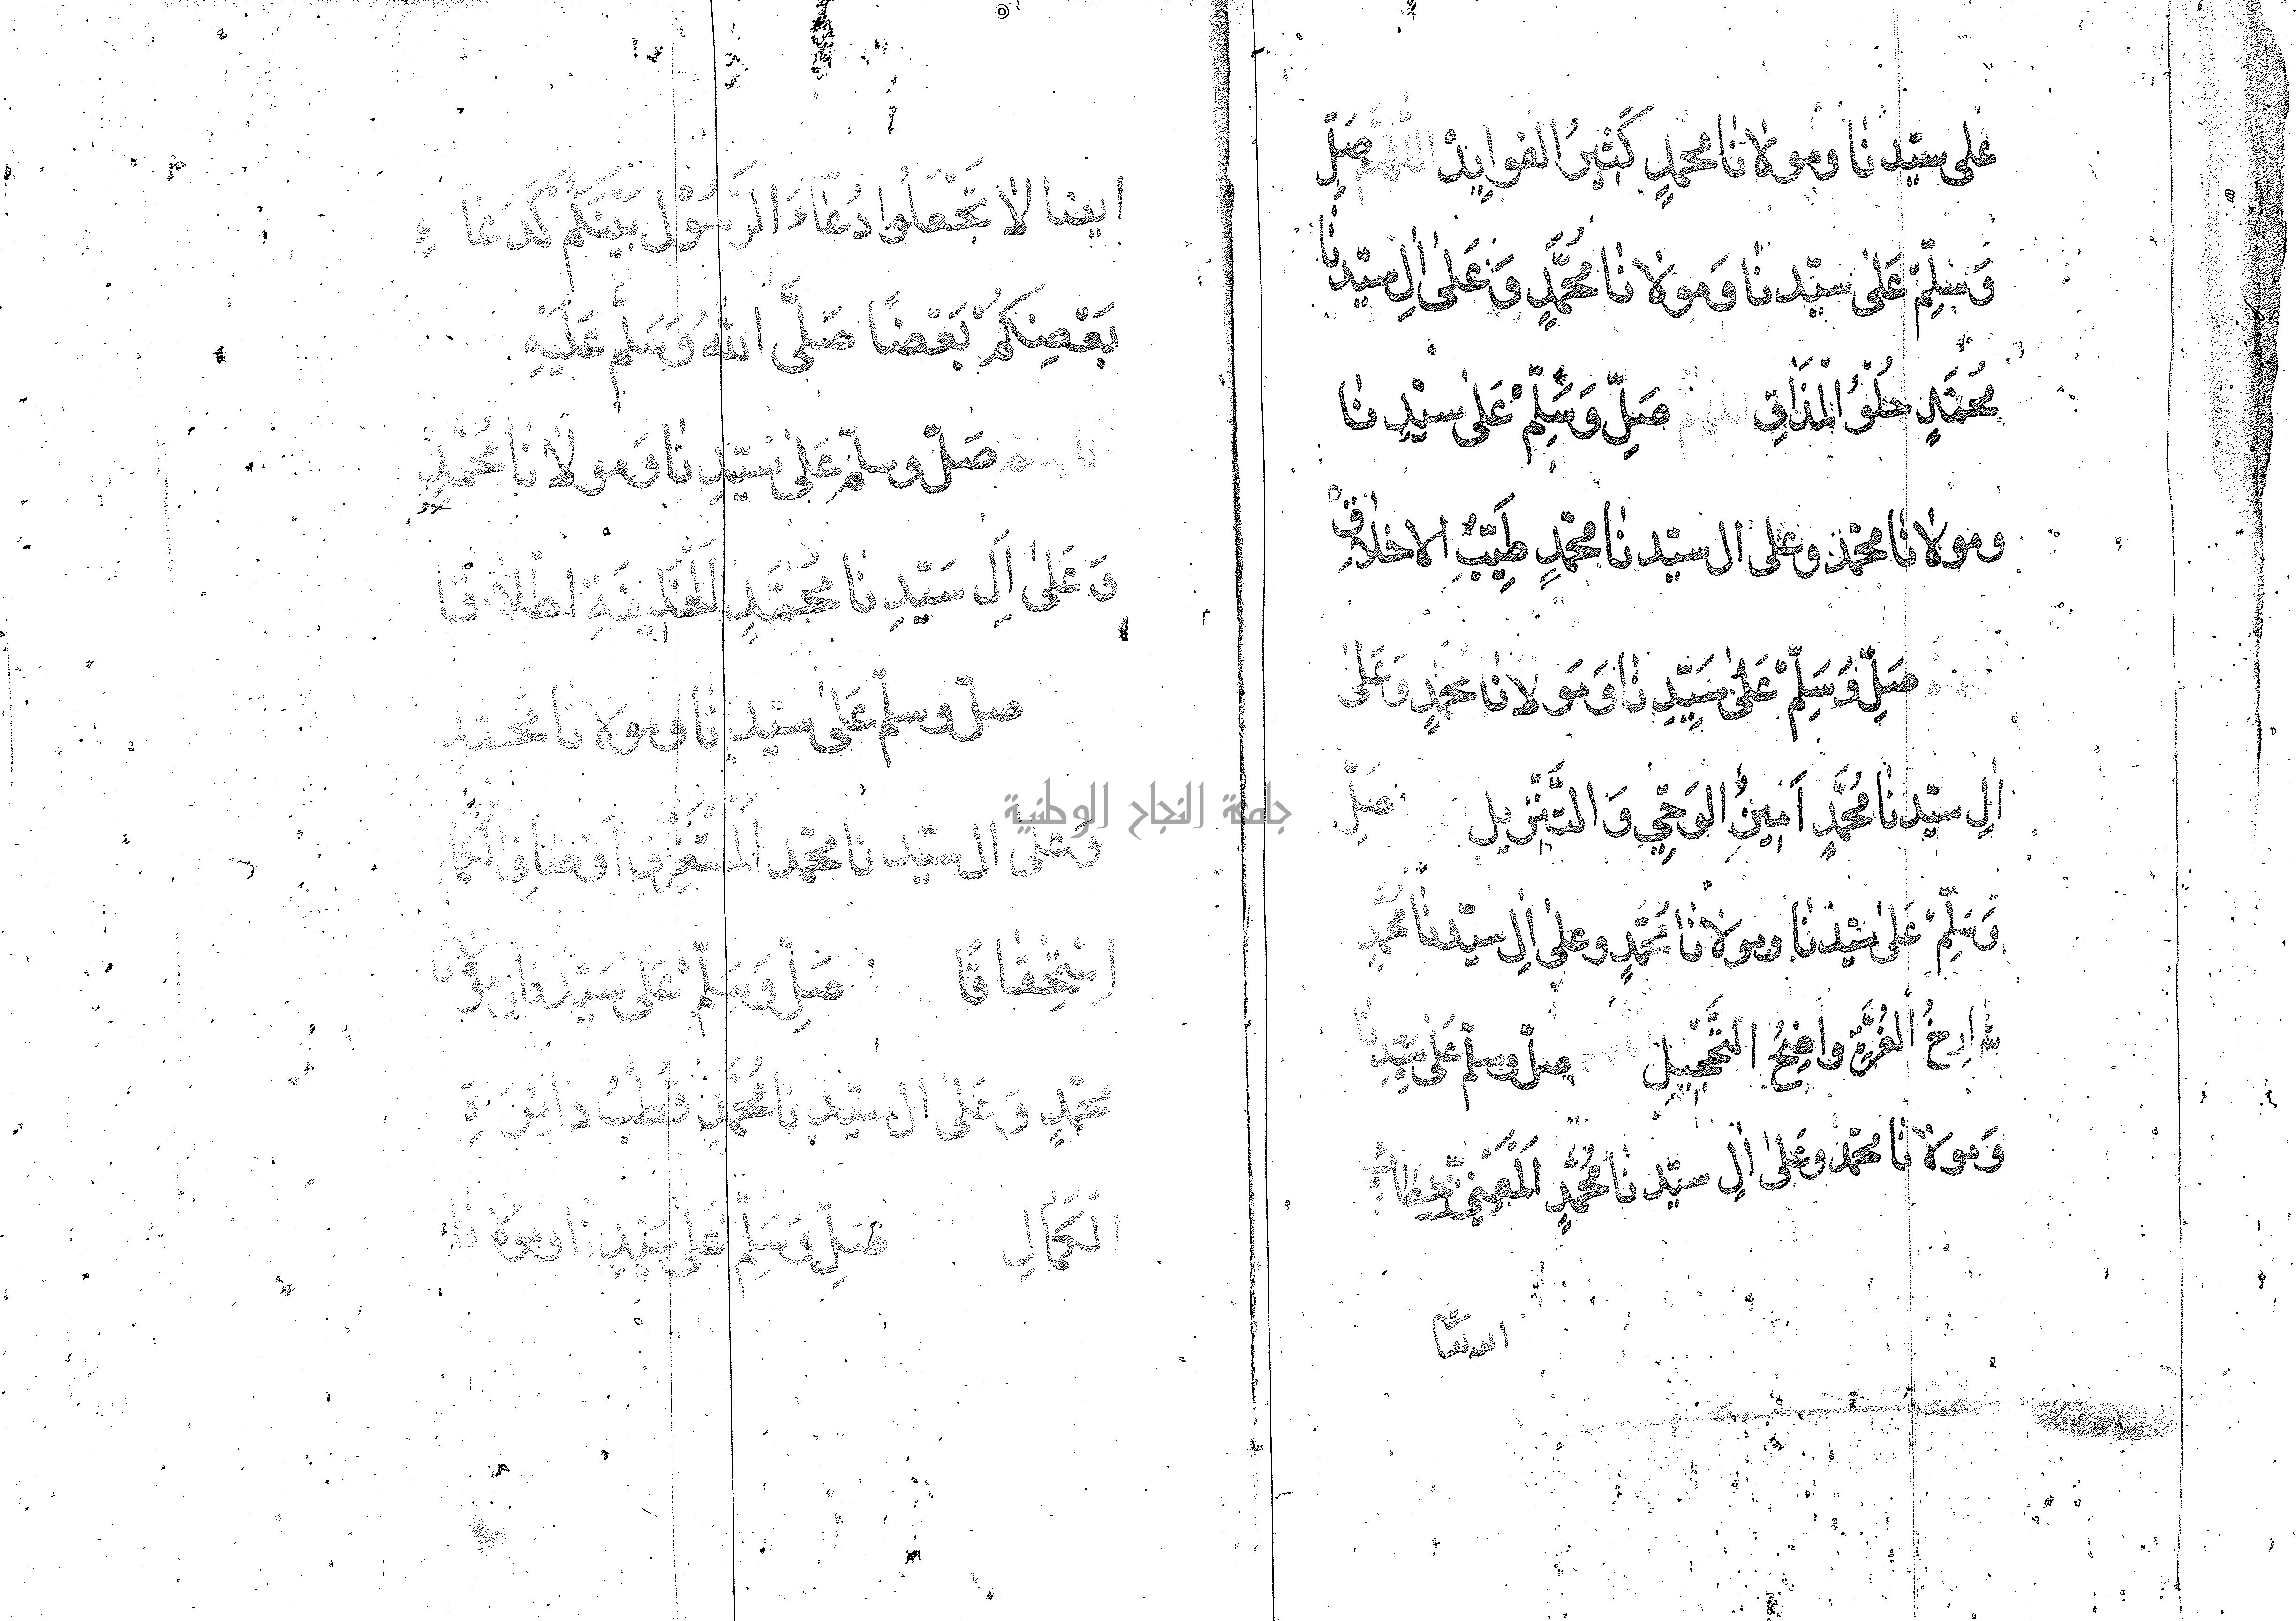 على سيّدنا ومولانا محمدٍ كَثِيرُ الفوايِدْ اللّهُمَّ صَلِّ
وَسَلِّمْ عَلىٰ سيّدنا وَمولانا مُحَمَّدٍ وَعَلىٰ اٰلِ سيّدنا
مُحَمَّدٍ حُلْوُ الْمَذَاقِ اللهم صَلِّ وَسَلِّمْ عَلىٰ سيّدِنا
ومولانا محمّد وعلى ال سيّدنا محمّدٍ طَيِّبُ الاخلاقِ
اللهم صَلِّ وَسَلِّمْ عَلىٰ سَيِّدِنا وَمَولانا محمدٍ وَعَلىٰ
اٰلِ سيّدنا مُحَمَّدٍ اَمِينُ الوَحْيِ وَالتَّنْزِيل صَلِّ
وَسَلِّمْ عَلىٰ سيّدنا ومولانا مُحَمَّدٍ وعلىٰ اٰلِ سيّدنا مُحَمَّدٍ
شارِخُ الْغُرَّةِ واضِحُ التَّحْجِيل اللهم صلّ وسلّم عَلىٰ سيّدِنا
وَمولانا محمّد وعَلىٰ اٰلِ سيّدنا مُحَمَّدٍ الْمَعْنِيِّ بخِطاب
الله تعا
ايضا لا تَجْعَلُوا دُعَآءَ الرَّسُوْلِ بَيْنَكُمْ كَدُعَاءِ
بَعْضِكُمْ بَعْضًا صَلَّى اللهُ وَسَلَّم عَلَيْهِ
اللهم صَلّ وسلّم عَلىٰ سيّدِنا وَمولانا مُحَمَّدٍ
وَعَلىٰ اَلِ سَيّدِنا مُحَمَّدٍ الْخَلِيفَةِ اطْلاقا
صلّ وسلّم عَلىٰ سيّدنا ومولانا مُحمّدٍ
وَعَلىٰ ال سيّدنا محمّد الْمُسْتَغْرِقِ اَوصَافِ الْكَمَالِ
اِسْتِحْقاقًا صَلِّ وَسَلِّمْ عَلىٰ سَيّدنا ومولانا
محمّدٍ وَعَلىٰ ال سيّدنا مُحَمَّدٍ قُطْبُ دائِرَةِ
الْكَمَالِ صَلِّ وَسَلِّمْ عَلىٰ سَيِّدِنا ومَولانا
جامعة النجاح الوطنية